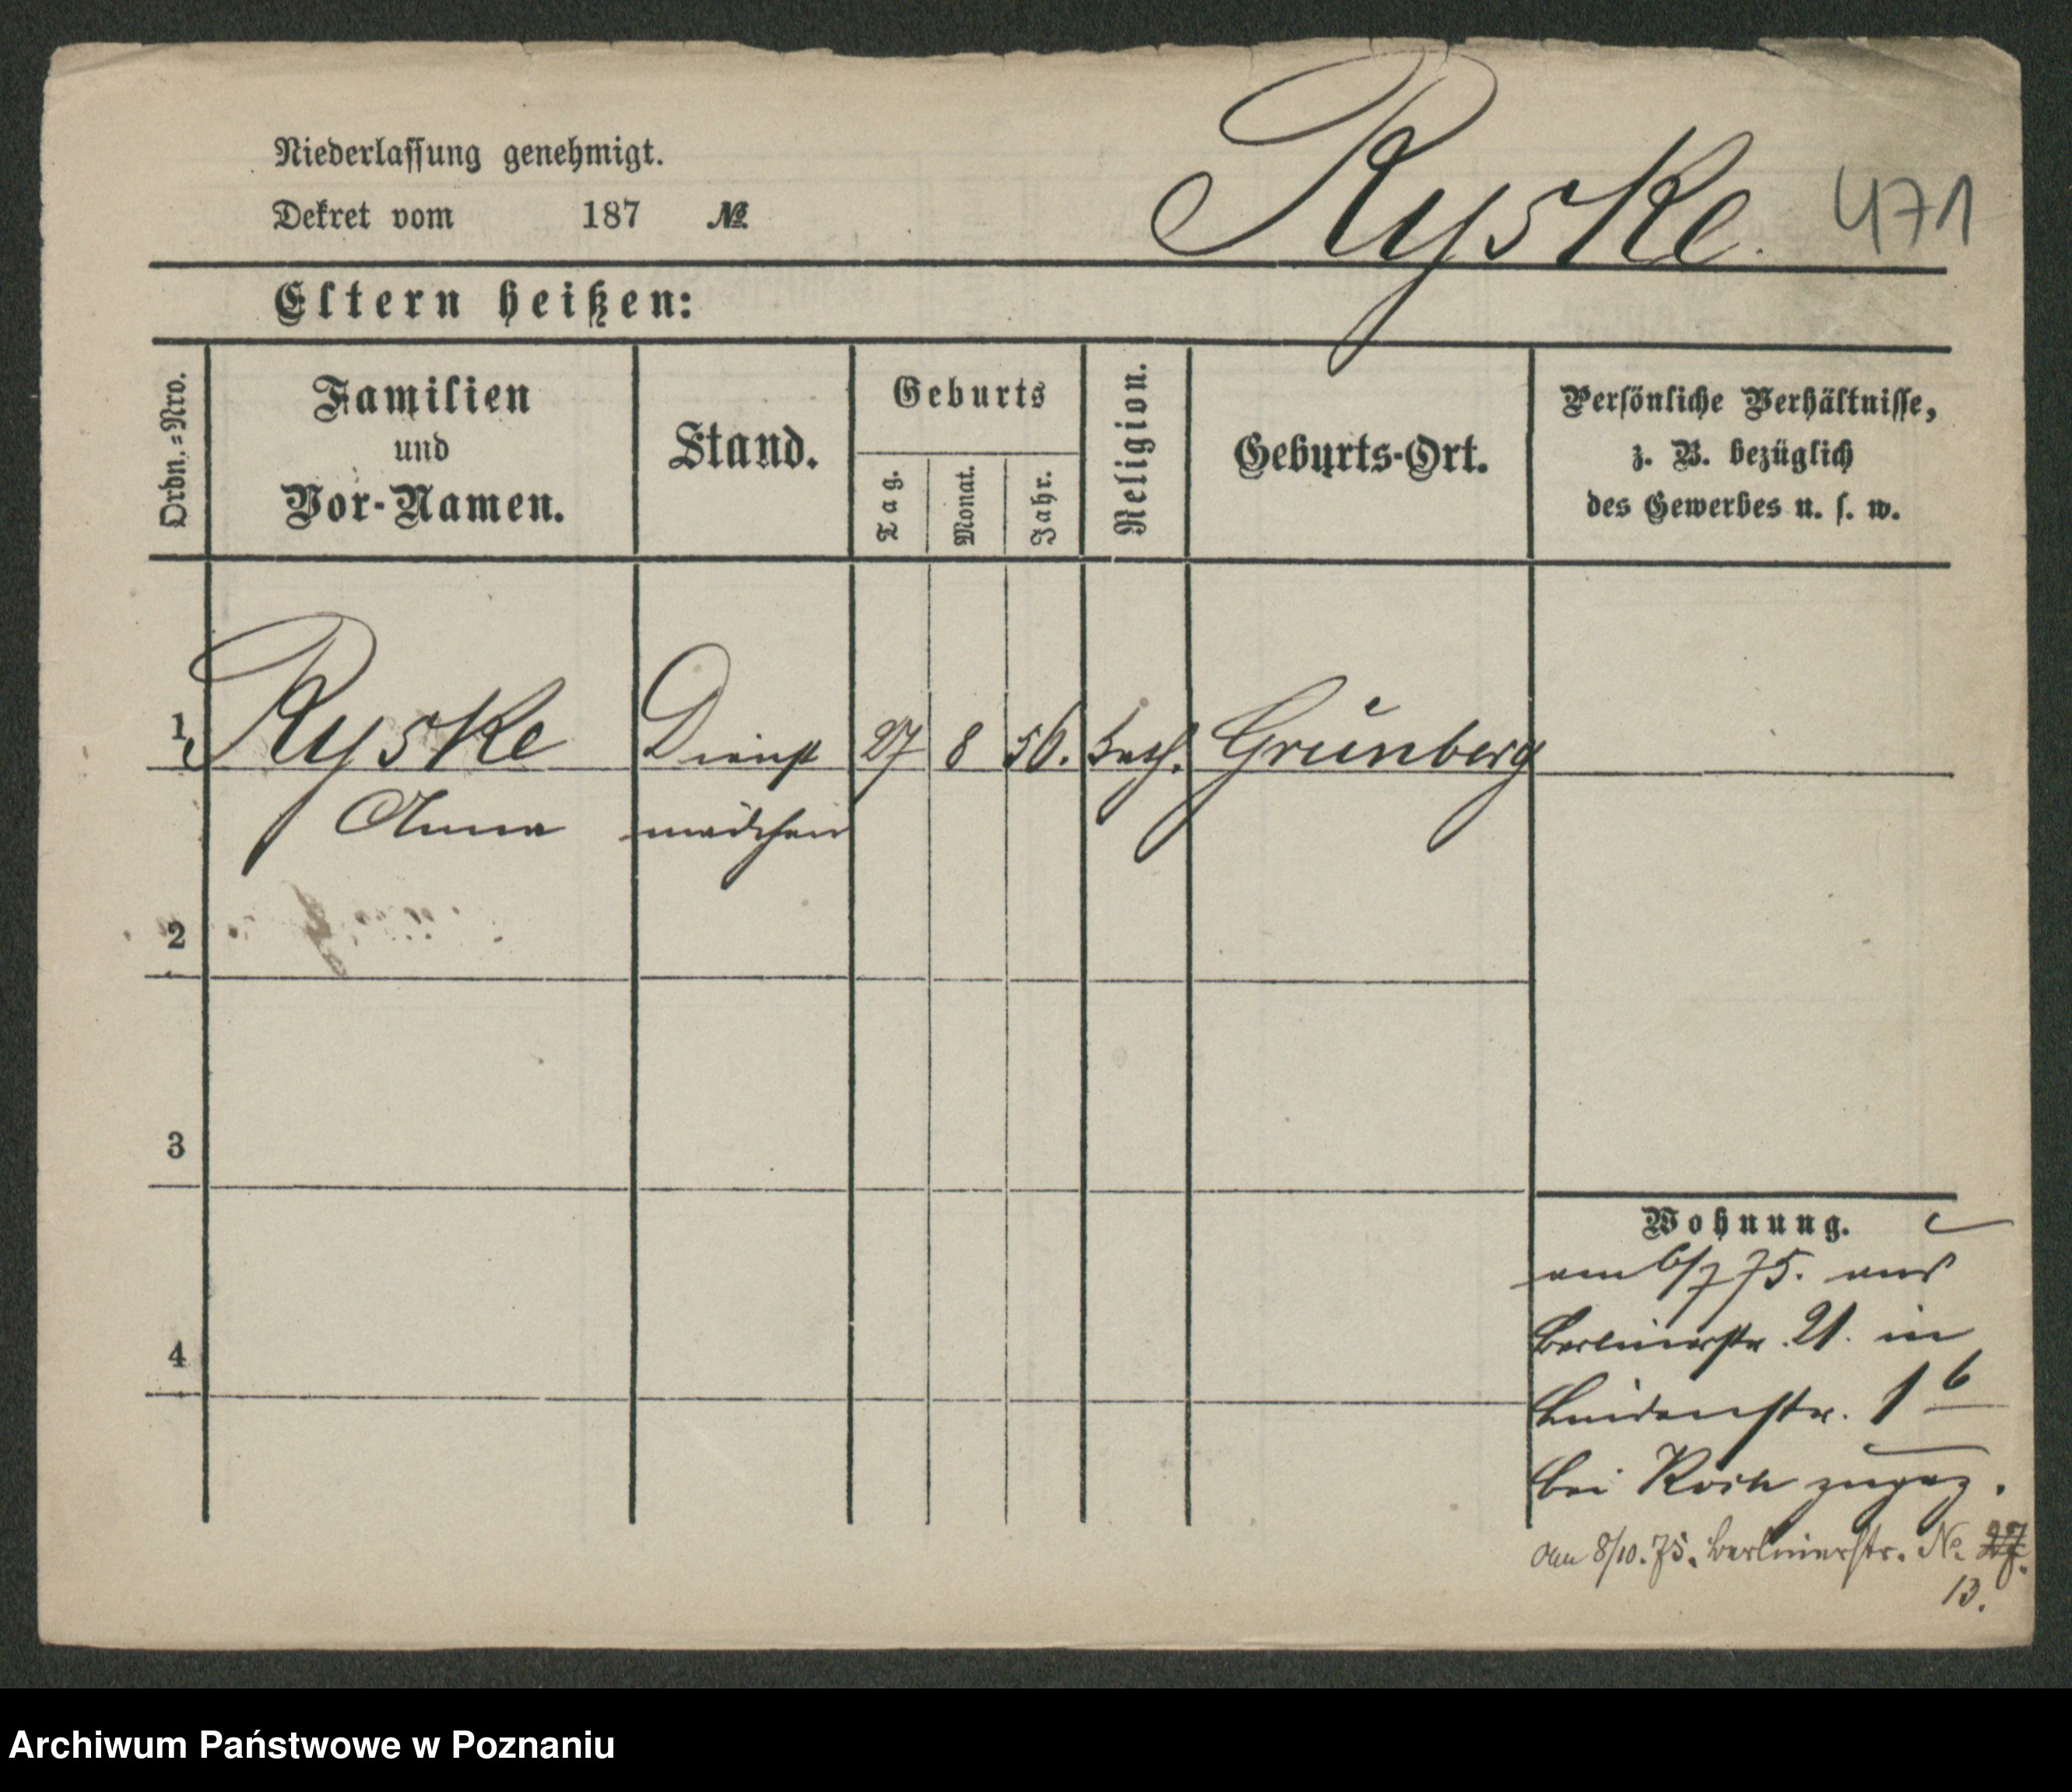 Niederlassung genehmigt.
Ryske. 471
Dekret vom 187 №
Eltern heißen:
Ordn.=Nro.
Familien
und
Vor-Namen.
Stand.
Geburts
Tag.
Monat.
Jahr.
Religion.
Geburts-Ort.
Persönliche Verhältnisse,
z. B. bezüglich
des Gewerbes u. s. w.
1 Ryske Dienst 27 8 56. kath. Grünberg
Anna mädchen
2
3
4
Wohnung.
am 6/7 75. aus
Berlinerstr. 21. in
Lindenstr. 1 b
bei Koch zugez.
Am 8/10. 75. Berlinerstr. No 27.
13.
Archiwum Państwowe w Poznaniu